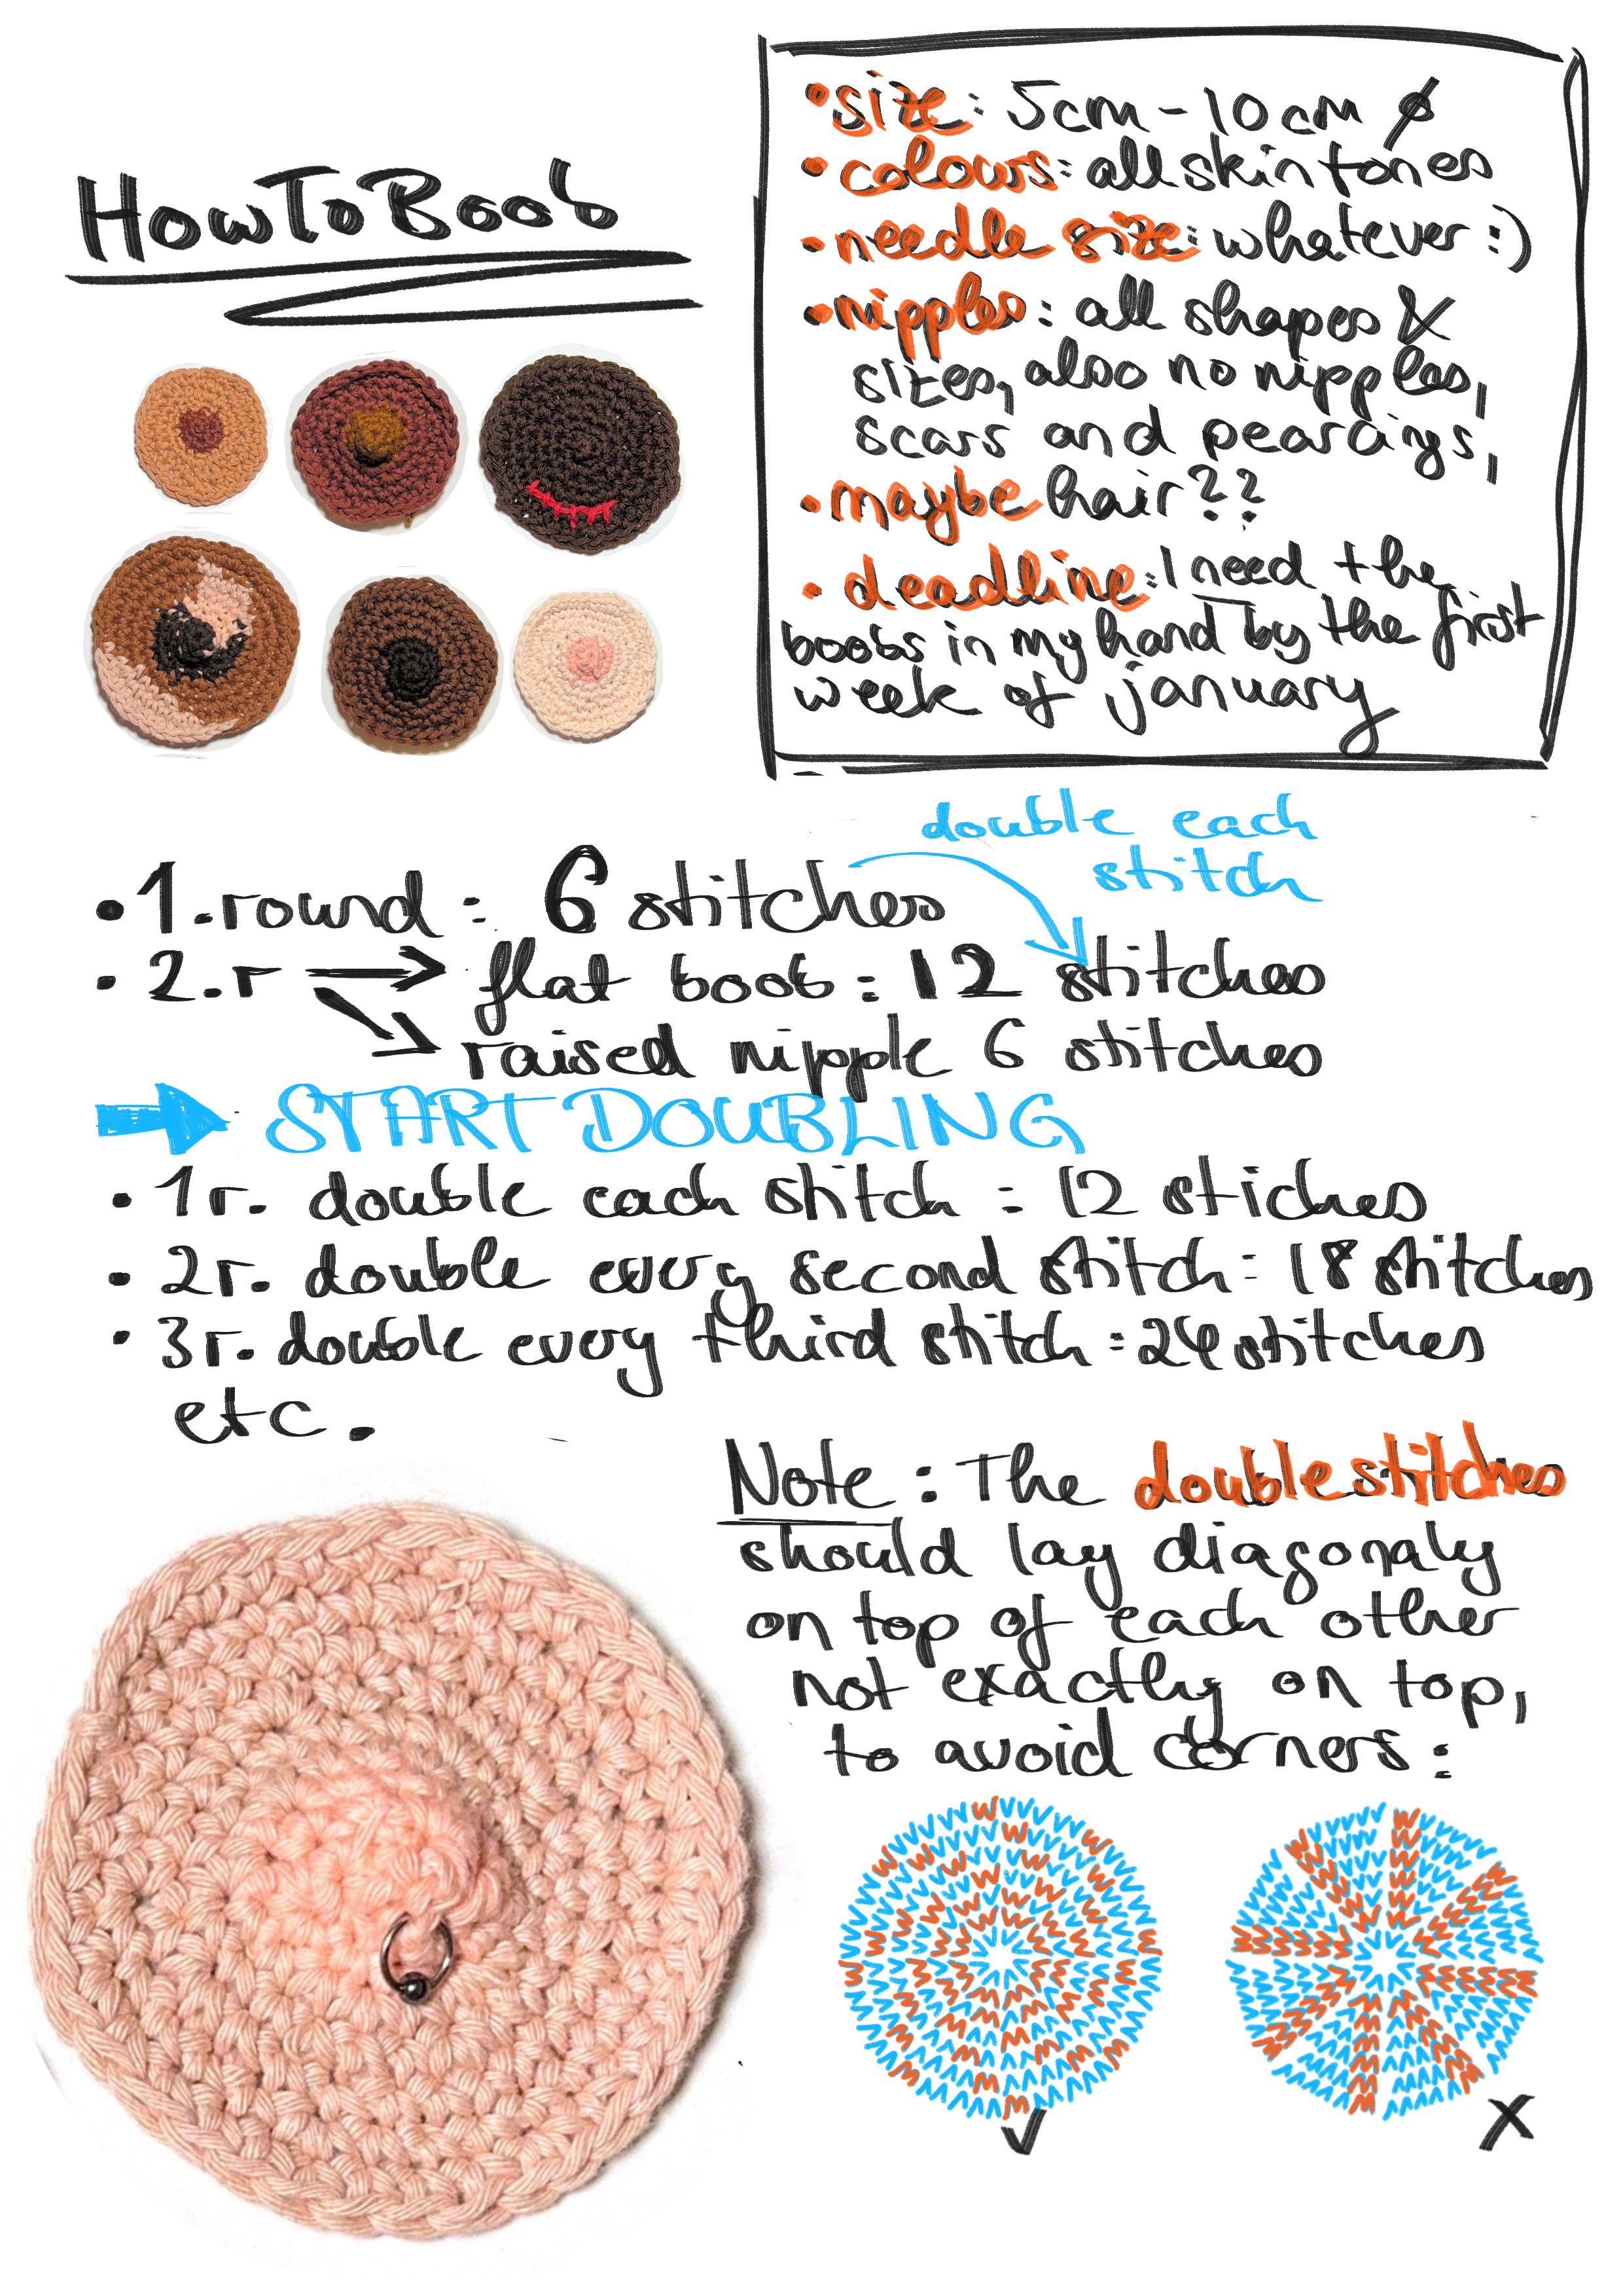 How To Boob
• size: 5cm - 10cm ø
• colours: all skin tones
• needle size: whatever :)
• nipples: all shapes &
sizes, also no nipples,
scars and pearcings,
• maybe hair??
• deadline: I need the
boobs in my hand by the first
week of january
double each
stitch
• 1. round: 6 stitches
• 2. r → flat boob: 12 stitches
raised nipple 6 stitches
→ START DOUBLING
• 1r. double each stitch = 12 stiches
• 2r. double every second stitch = 18 stitches
• 3r. double every third stitch = 24 stitches
etc.
Note: The double stitches
should lay diagonaly
on top of each other
not exactly on top,
to avoid corners: